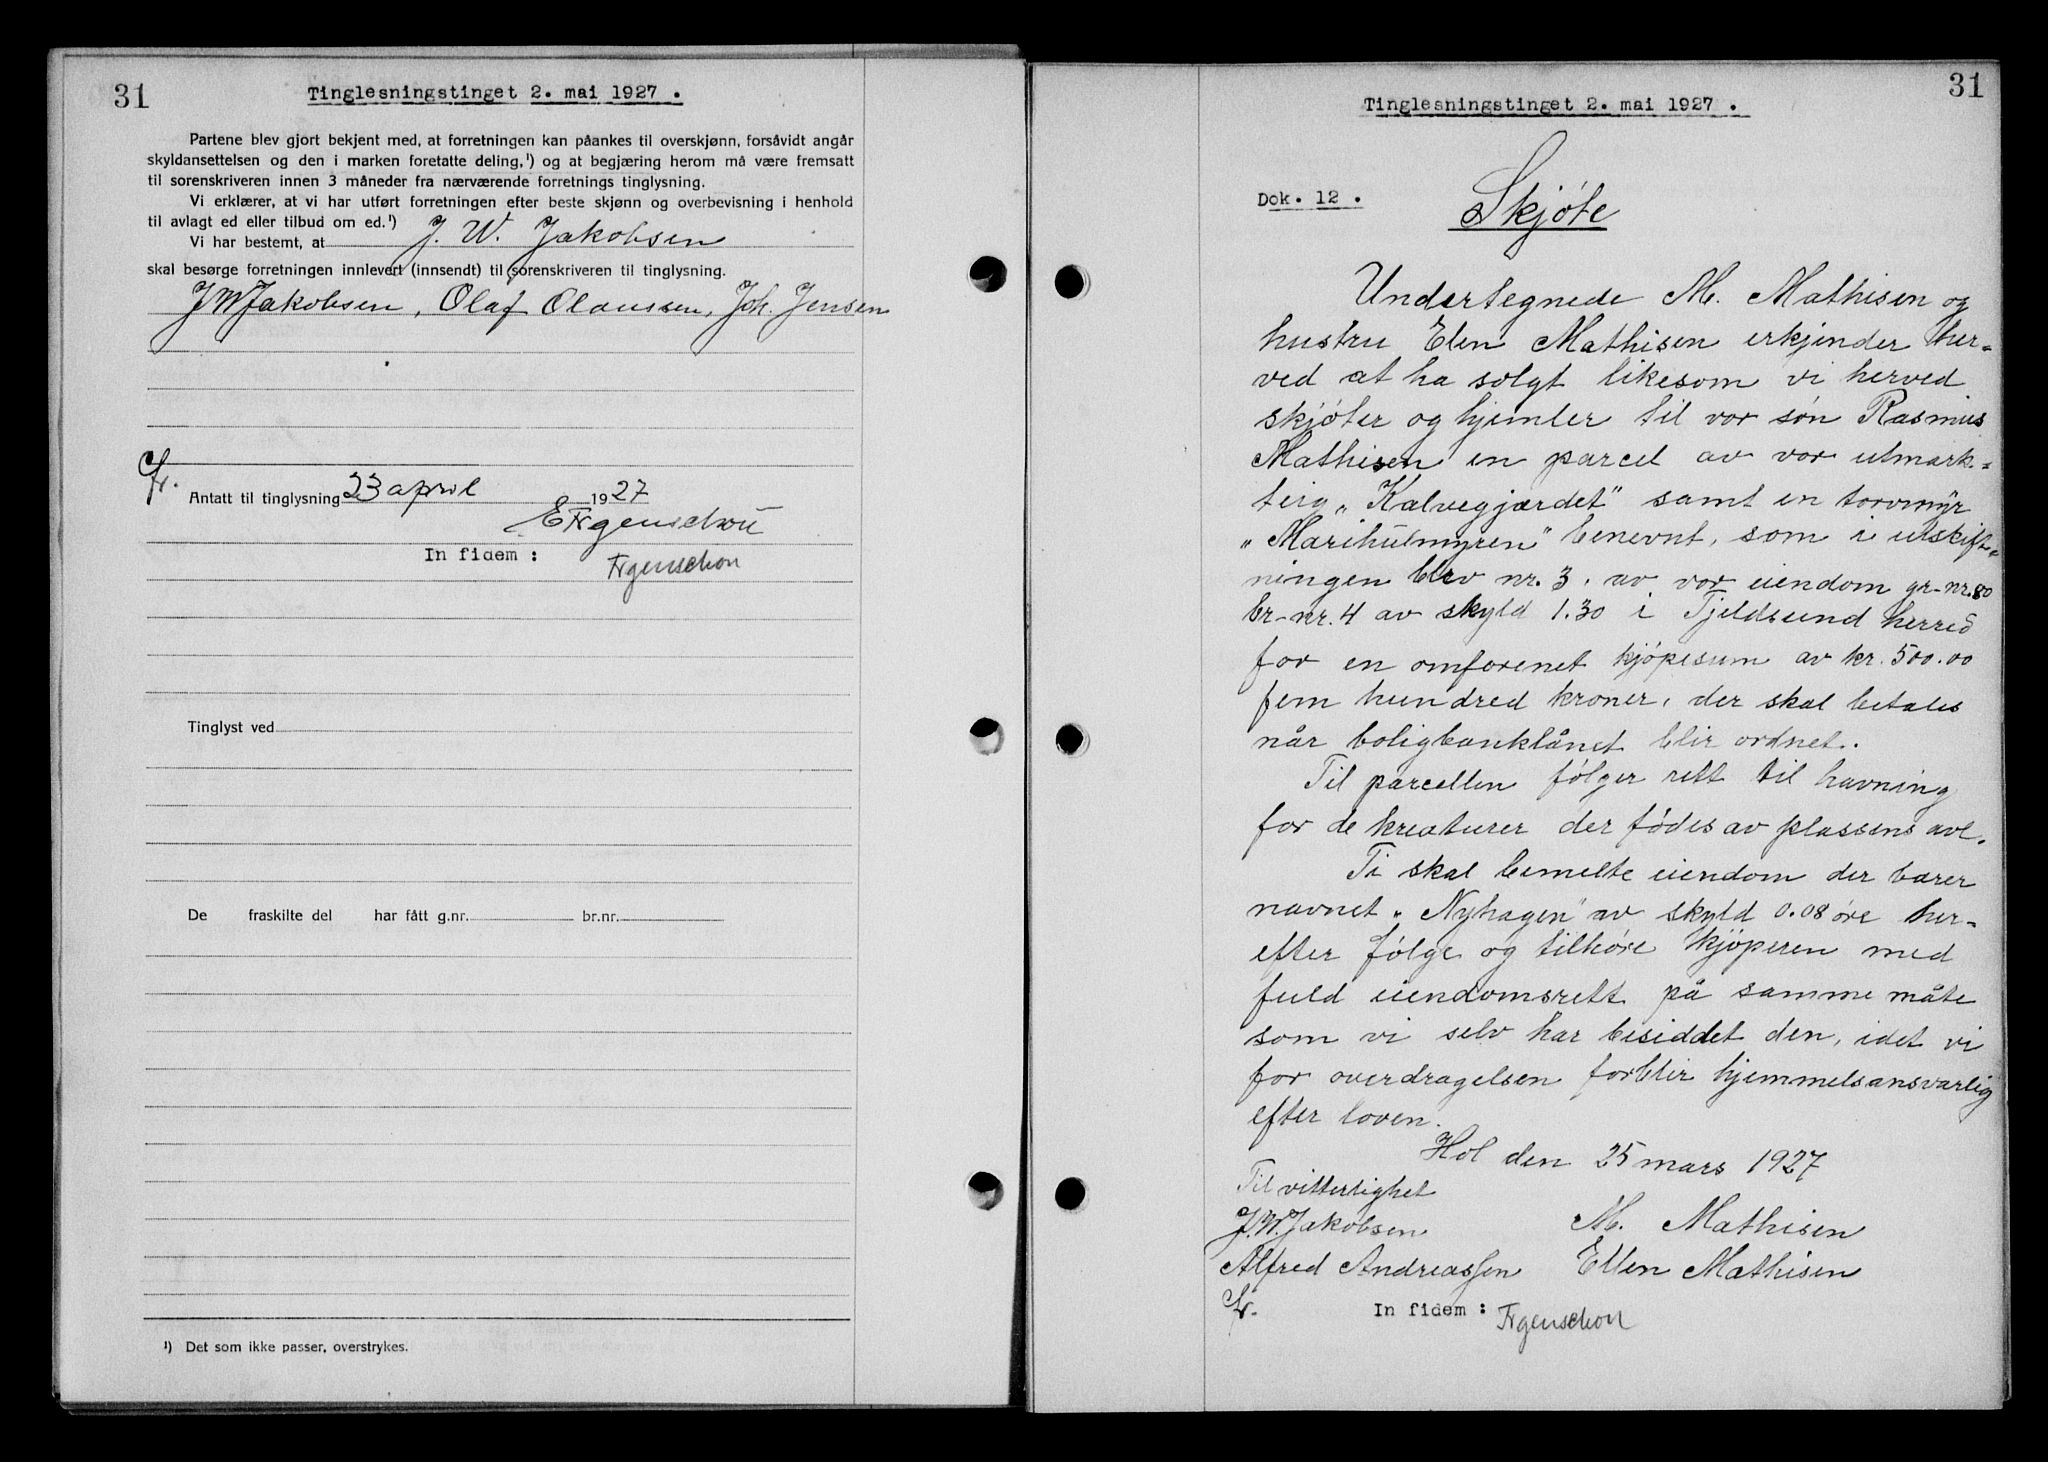 31
Tinglesningstinget 2. mai 1927 .
Partene blev gjort bekjent med, at forretningen kan påankes til overskjønn, forsåvidt angår
skyldansettelsen og den i marken foretatte deling,¹) og at begjæring herom må være fremsatt
til sorenskriveren innen 3 måneder fra nærværende forretnings tinglysning.
Vi erklærer, at vi har utført forretningen efter beste skjønn og overbevisning i henhold
til avlagt ed eller tilbud om ed.¹)
Vi har bestemt, at J. W. Jakobsen
skal besørge forretningen innlevert (innsendt) til sorenskriveren til tinglysning.
J W Jakobsen, Olaf Olaussen, Joh. Jensen
Antatt til tinglysning 23 april 1927
In fidem :
Tinglyst ved
De fraskilte del har fått g.nr. br.nr.
¹) Det som ikke passer, overstrykes.
31
Tinglesningstinget 2. mai 1927 .
Dok. 12 .
Skjöte
Undertegnede M. Mathisen og
hustru Elen Mathisen erkjender her=
ved at ha solgt likesom vi herved
skjöter og hjemler til vor sön Rasmus
Mathisen en parcel av vor utmark=
teig „Kalvegjærdet" samt en torvmyr
„Marihulmyren" benevnt, som i utskift=
ningen blev nr. 3. av vor eiendom gr-nr.80
br-nr. 4 av skyld 1.30 i Tjeldsund herred
for en omforenet kjöpesum av kr. 500.00
fem hundred kroner, der skal betales
når boligbanklånet blir ordnet.
Til parcellen fölger rett til havning
for de kreaturer der födes av plassens avl.
Ti skal bemelte eiendom der bærer
navnet „Nyhagen" av skyld 0.08 öre her-
efter fölge og tilhöre kjöperen med
fuld eiendomsrett på samme måte
som vi selv har besiddet den, idet vi
for overdragelsen forblir hjemmelsansvarlig
efter loven.
Hol den 25 mars 1927
Til vitterlighet
J. W. Jakobsen M. Mathisen
Alfred Andreassen Ellen Mathisen
In fidem :